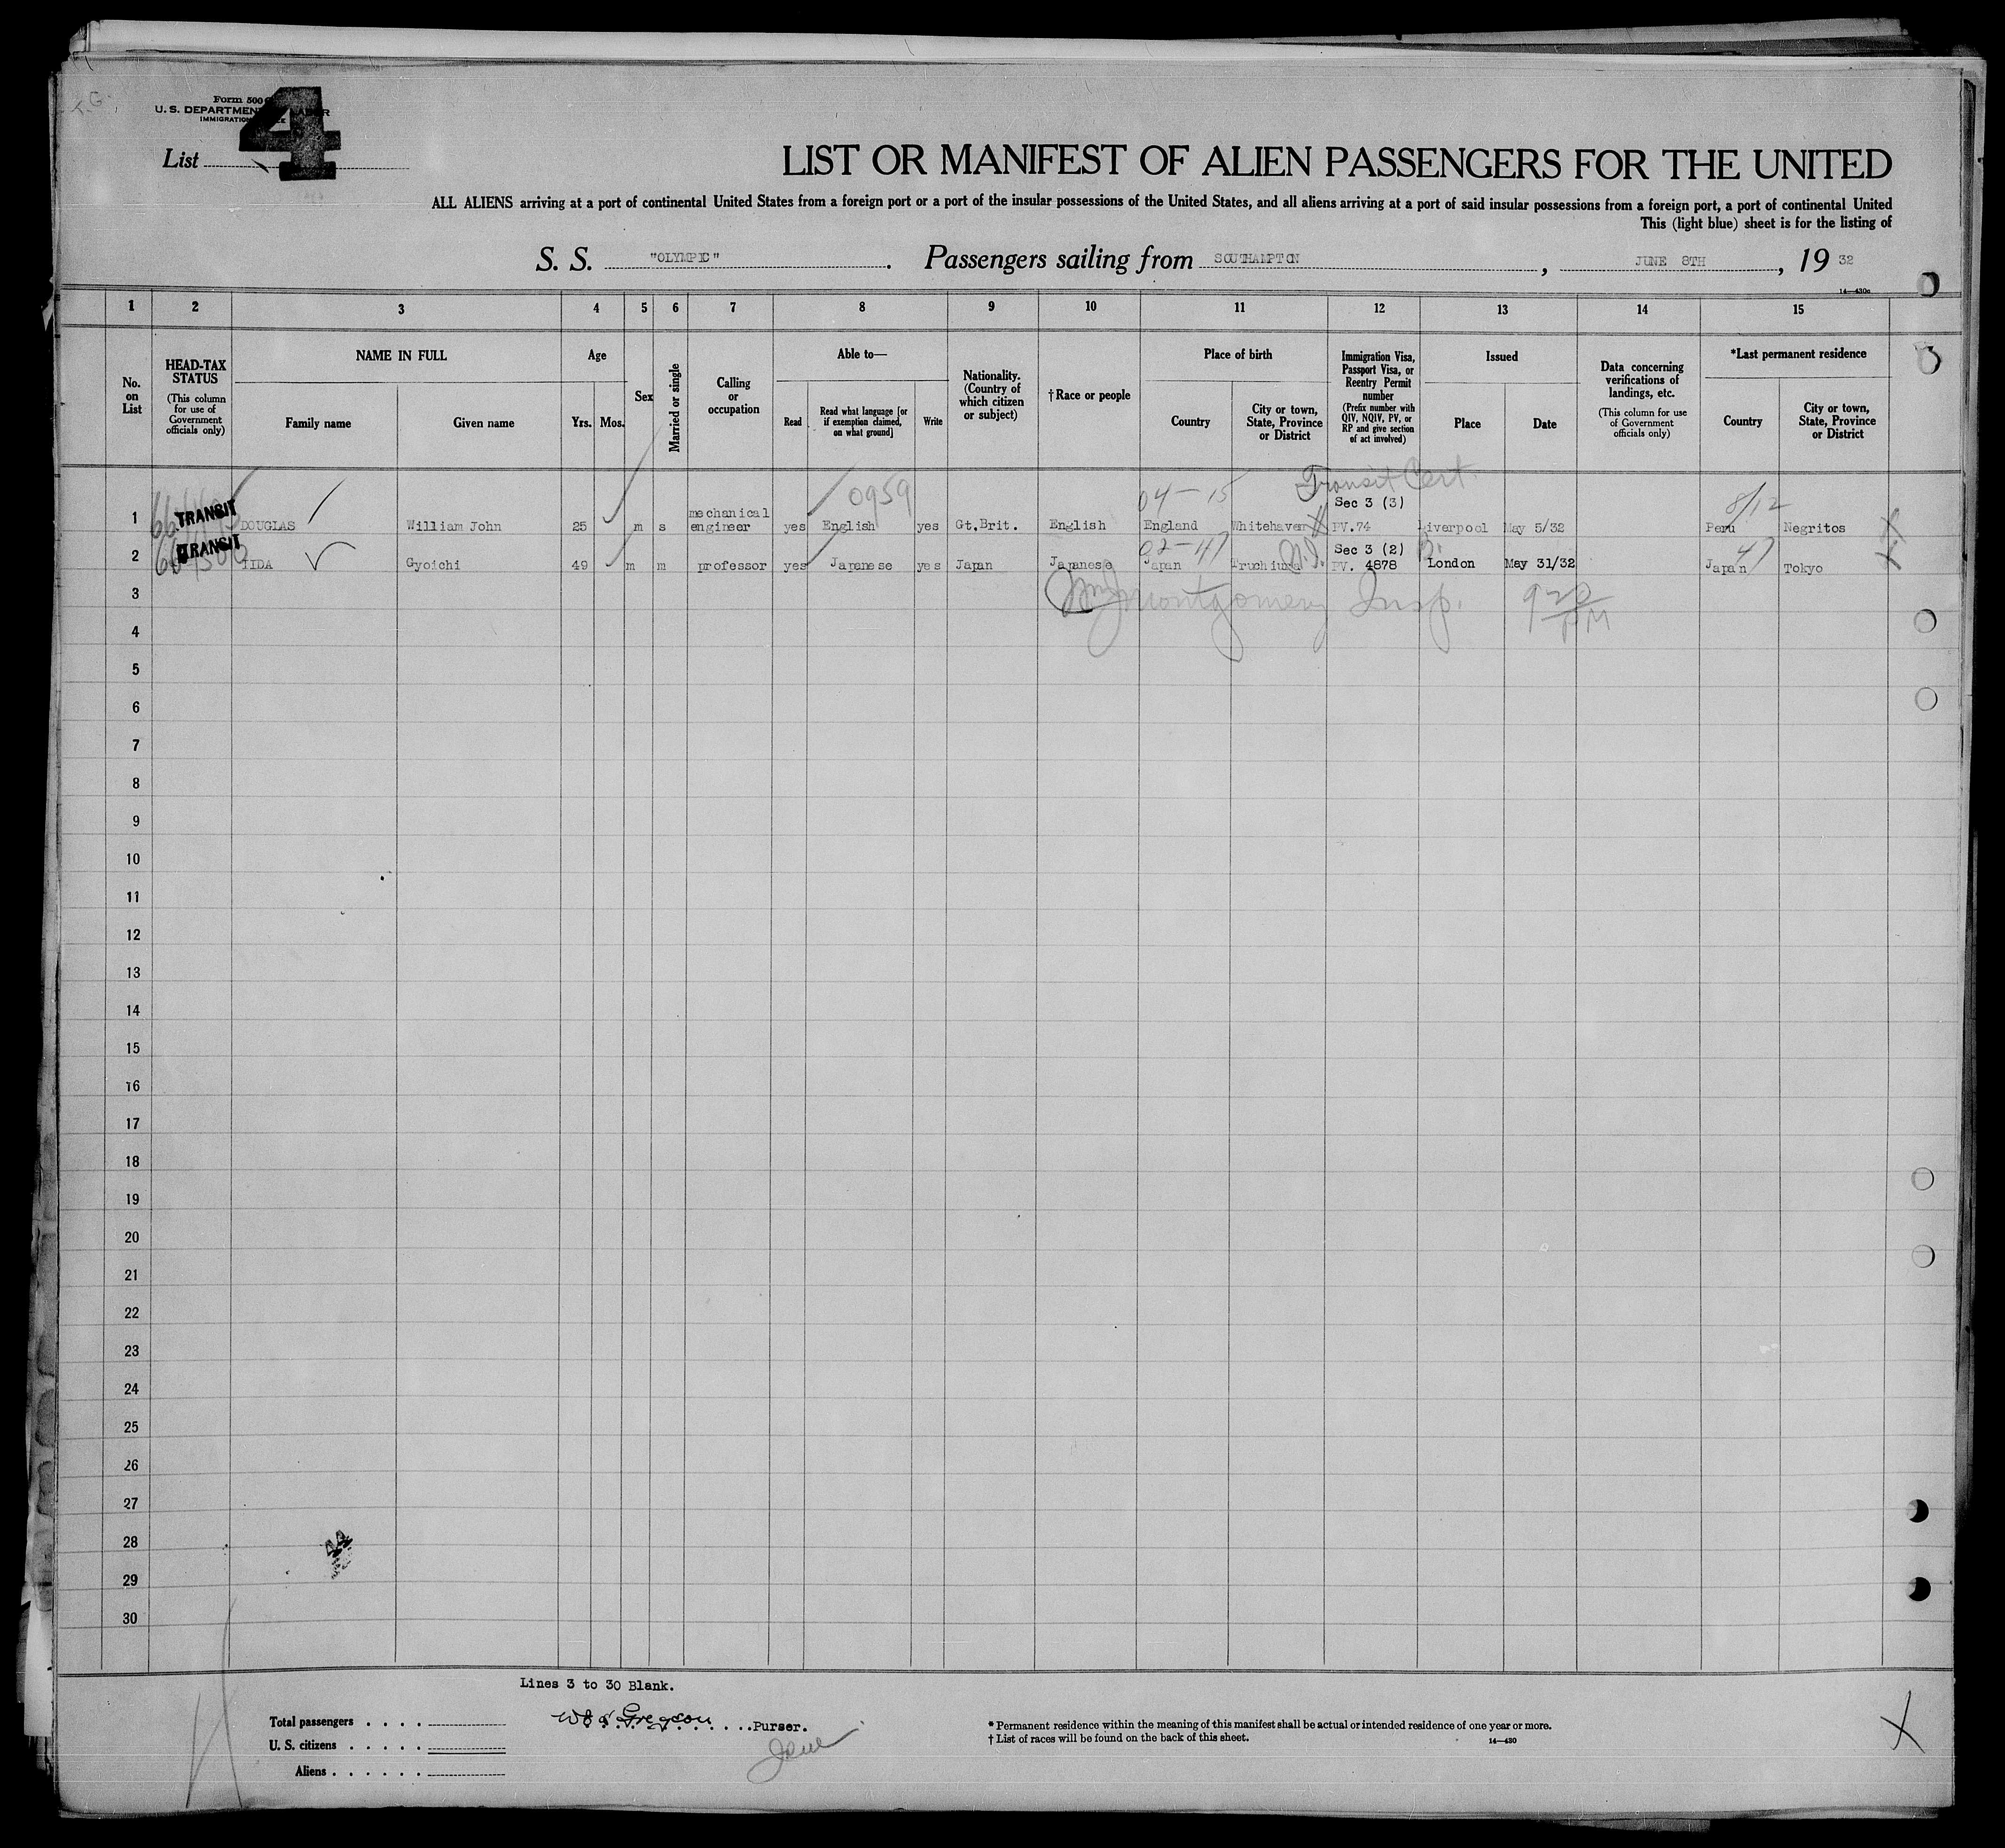 Form 500
U. S. DEPARTMENT
IMMIGRATION
List 4
LIST OR MANIFEST OF ALIEN PASSENGERS FOR THE UNITED
ALL ALIENS arriving at a port of continental United States from a foreign port or a port of the insular possessions of the United States, and all aliens arriving at a port of said insular possessions from a foreign port, a port of continental United
This (light blue) sheet is for the listing of
S. S. "OLYMPIC". Passengers sailing from SOUTHAMPTON, JUNE 8TH, 19 32
14—430c
1 2 3 4 5 6 7 8 9 10 11 12 13 14 15
No. on List
HEAD-TAX STATUS
(This column for use of Government officials only)
NAME IN FULL
Family name Given name
Age
Yrs. Mos.
Sex
Married or single
Calling or occupation
Able to—
Read Read what language [or if exemption claimed, on what ground] Write
Nationality. (Country of which citizen or subject)
†Race or people
Place of birth
Country City or town, State, Province or District
Immigration Visa, Passport Visa, or Reentry Permit number
(Prefix number with QIV, NQIV, PV, or RP and give section of act involved)
Issued
Place Date
Data concerning verifications of landings, etc.
(This column for use of Government officials only)
*Last permanent residence
Country City or town, State, Province or District
Transit Cert.
0959 04-15 Sec 3 (3) 8/12
1 TRANSIT DOUGLAS William John 25 m s mechanical engineer yes English yes Gt.Brit. English England Whitehaven PV.74 Liverpool May 5/32 Peru Negritos
02-47 Sec 3 (2) 47
2 TRANSIT IIDA Gyoichi 49 m m professor yes Japanese yes Japan Japanese Japan PV. 4878 London May 31/32 Japan Tokyo
3 Montgomery Insp. 9 20 PM
4
5
6
7
8
9
10
11
12
13
14
15
16
17
18
19
20
21
22
23
24
25
26
27
28
29
30
Lines 3 to 30 Blank.
Total passengers . . . .
U. S. citizens . . . . .
Aliens . . . . . .
Gregson Purser.
* Permanent residence within the meaning of this manifest shall be actual or intended residence of one year or more.
† List of races will be found on the back of this sheet.
14—430